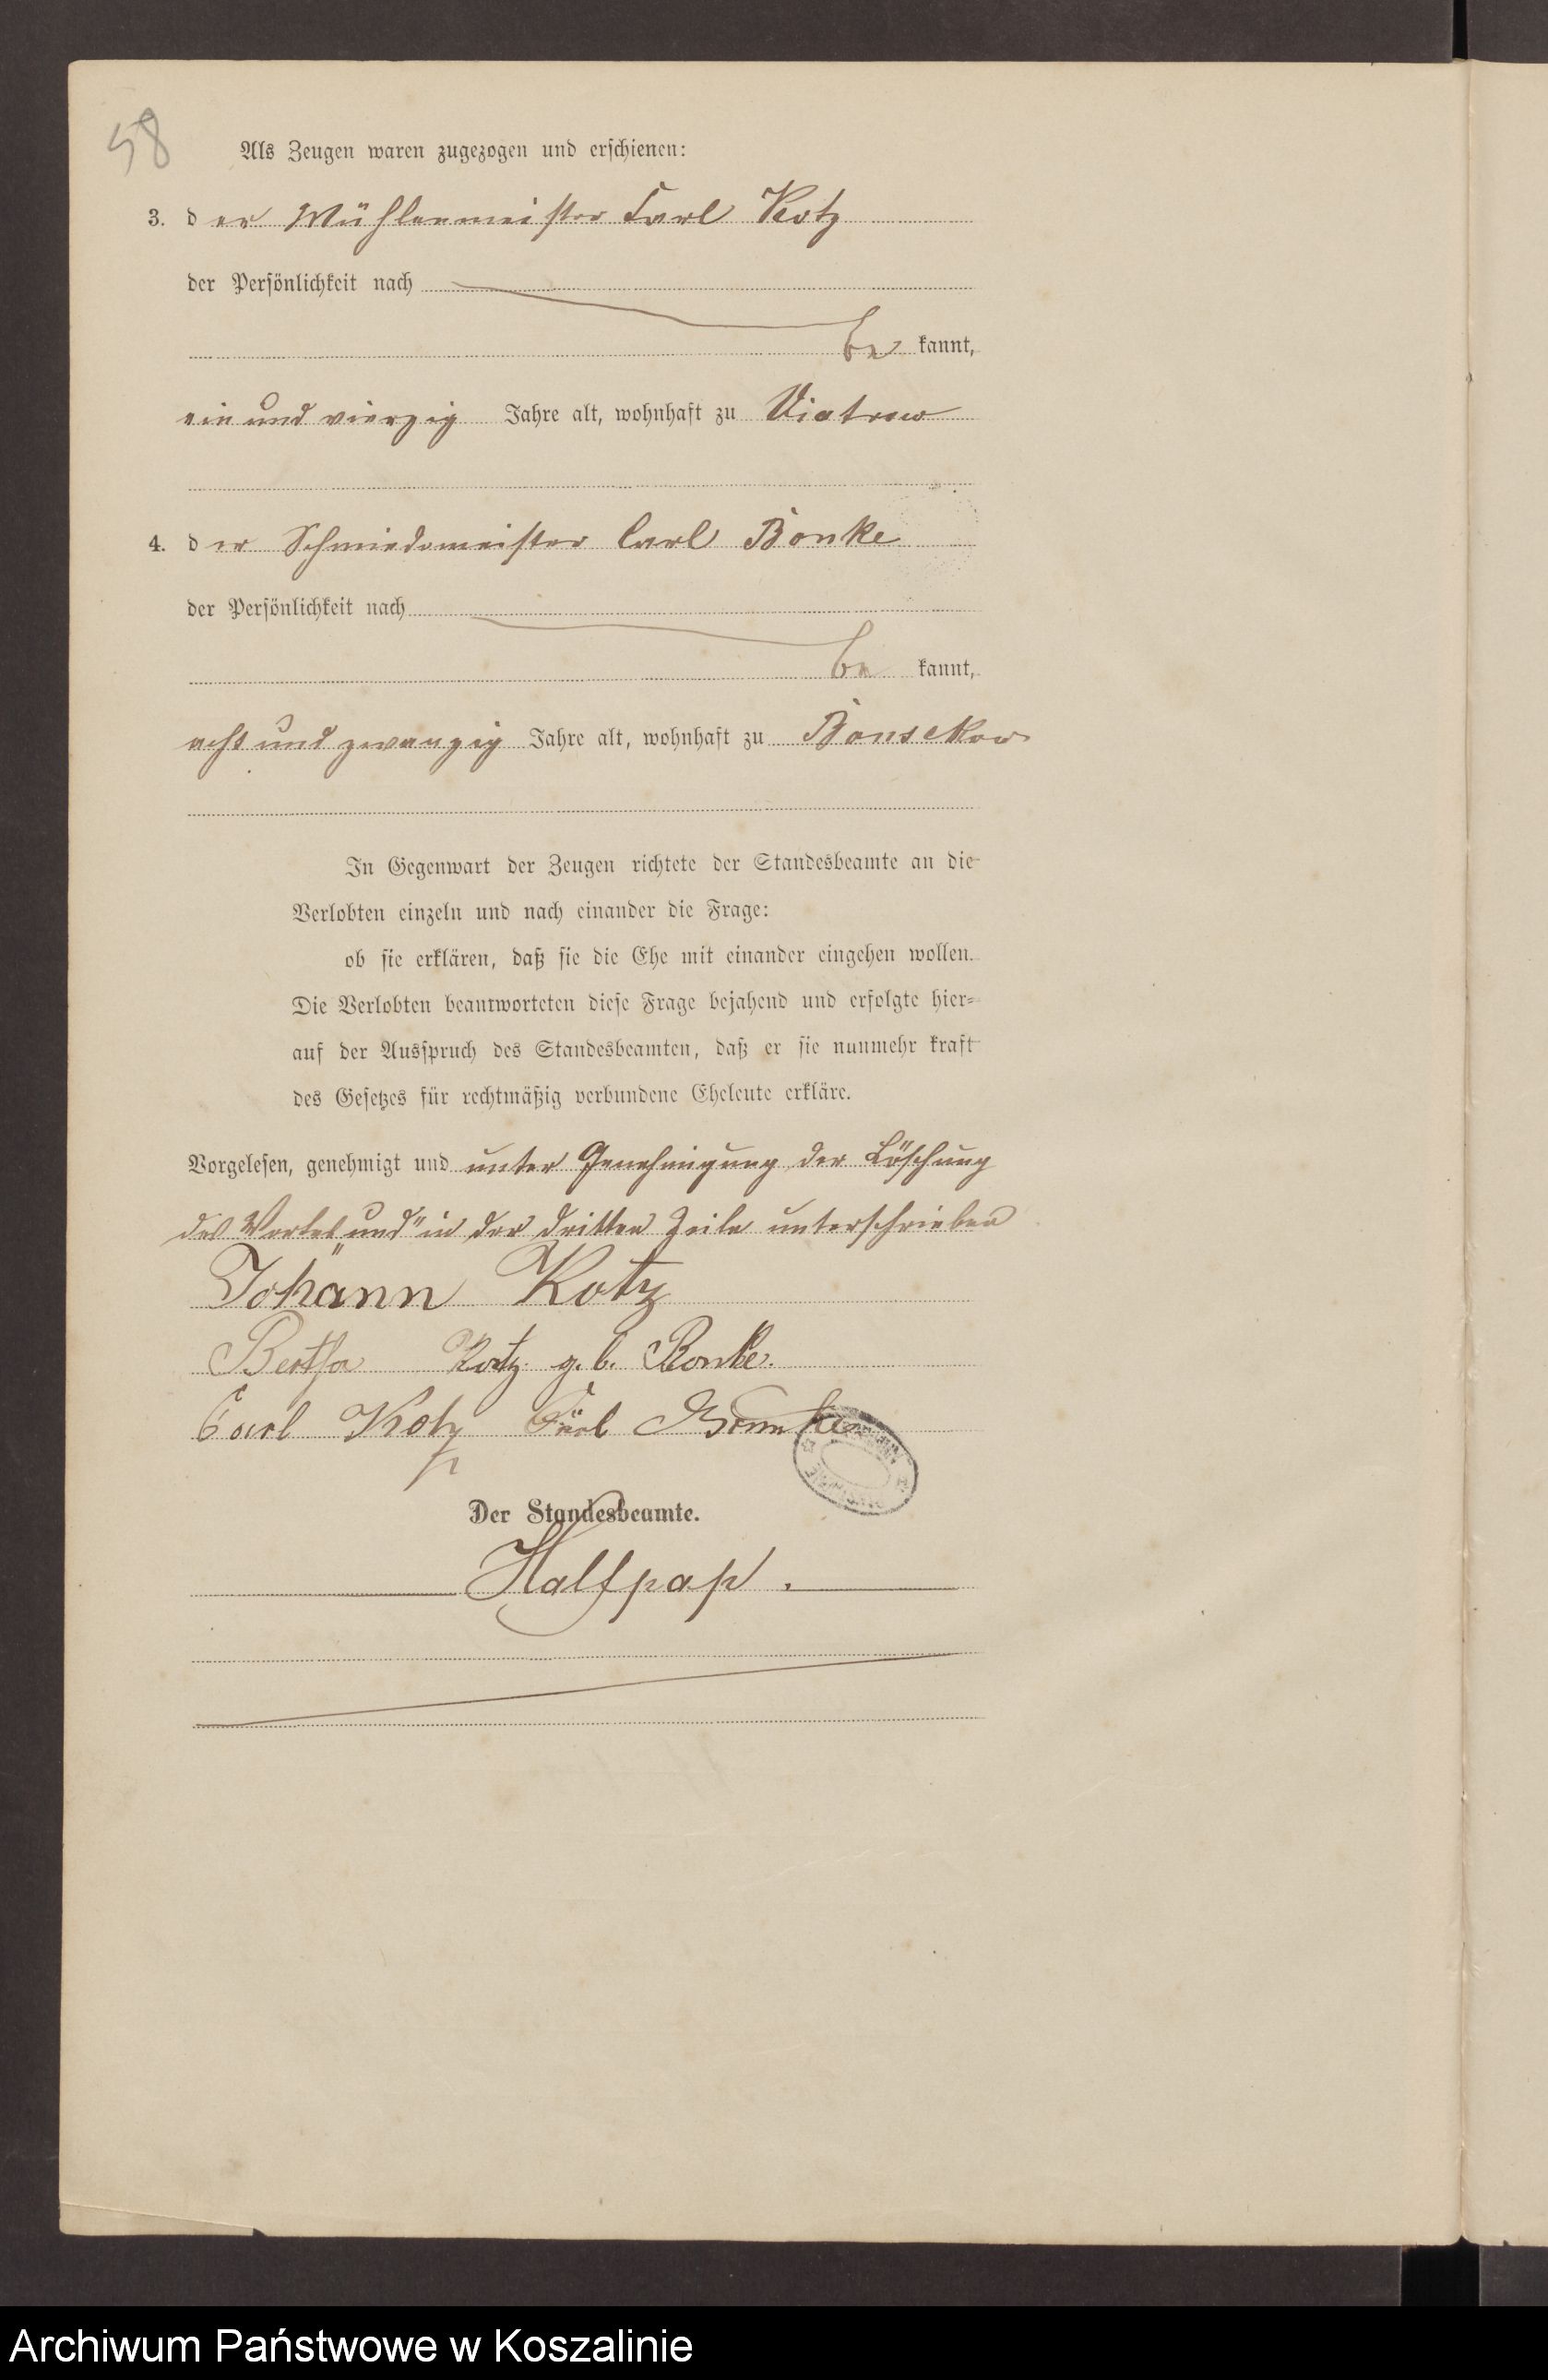 58
Als Zeugen waren zugezogen und erschienen:
3. der Mühlenmeister Carl Kotz
der Persönlichkeit nach
be kannt,
ein und vierzig Jahre alt, wohnhaft zu Viatrow
4. der Schmiedemeister Carl Bonke
der Persönlichkeit nach
be kannt,
acht und zwanzig Jahre alt, wohnhaft zu Bansekow
In Gegenwart der Zeugen richtete der Standesbeamte an die
Verlobten einzeln und nach einander die Frage:
ob sie erklären, daß sie die Ehe mit einander eingehen wollen.
Die Verlobten beantworteten diese Frage bejahend und erfolgte hier-
auf der Ausspruch des Standesbeamten, daß er sie nunmehr kraft
des Gesetzes für rechtmäßig verbundene Eheleute erkläre.
Vorgelesen, genehmigt und unter Genehmigung der Löschung
des Wortes „und“ in der dritten Zeile unterschrieben
Johann Kotz
Bertha Kotz g.b. Bonke.
Carl Kotz Carl Bonnke
Der Standesbeamte.
Halfpap.
Archiwum Państwowe w Koszalinie